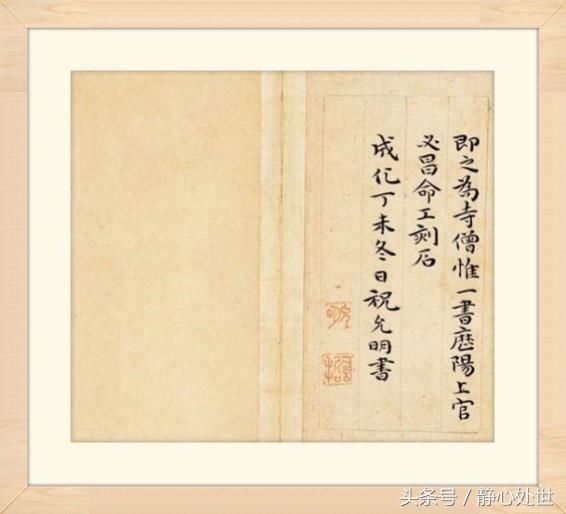 即之為寺僧惟一書歷陽上官
必昌命工刻石
成化丁未冬日祝允明書
头条号／静心处世